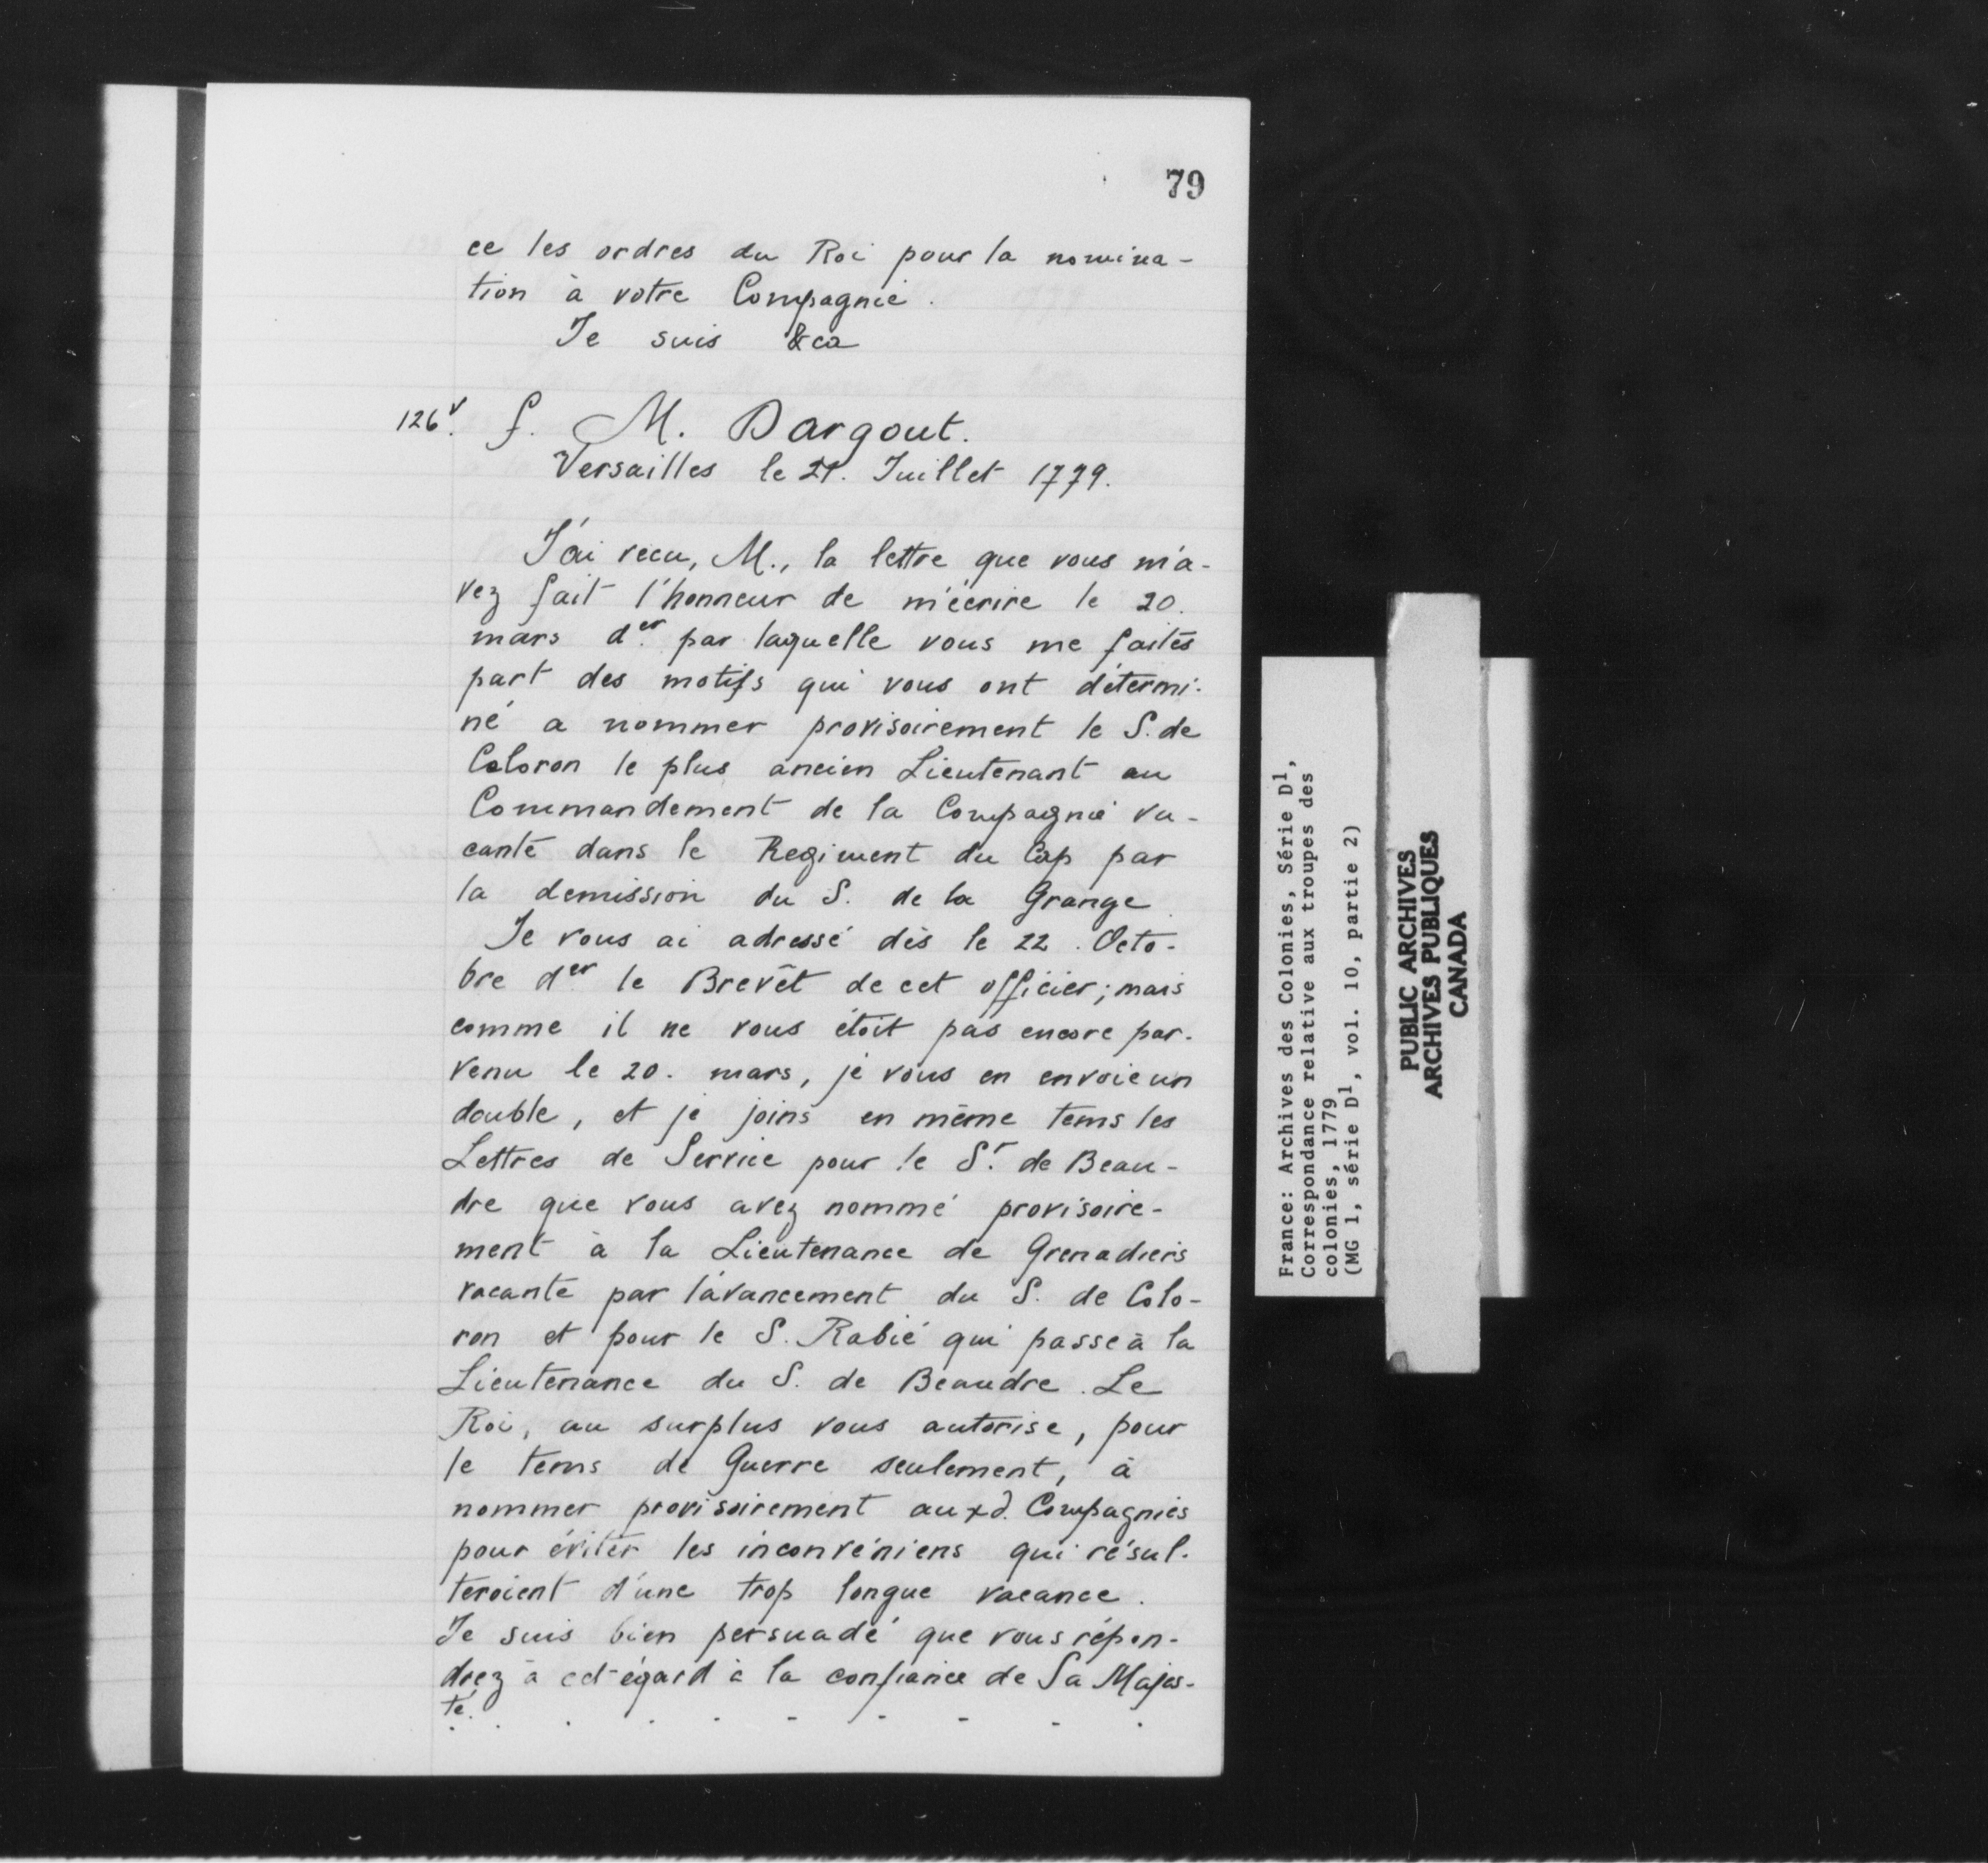 79
ce les ordres du Roi pour la nomina-
tion à votre Compagnie.
Je suis &ca
126v. f. M. Dargout.
Versailles le 21. Juillet 1779.
J'ai recu, M., la lettre que vous m'a-
vez fait l'honneur de m'écrire le 20.
mars der. par laquelle vous me faites
part des motifs qui vous ont détermi-
né a nommer provisoirement le S. de
Coloron le plus ancien Lieutenant au
Commandement de la Compagnie va-
cante dans le Regiment du Cap par
la demission du S. de la Grange.
Je vous ai adressé dès le 22. Octo-
bre der le Brevêt de cet officier; mais
comme il ne vous étoit pas encore par-
venu le 20. mars, je vous en envoie un
double, et je joins en même tems les
Lettres de Service pour le Sr. de Beau-
dre que vous avez nommé provisoire-
ment à la Lieutenance de Grenadiers
vacante par l'avancement du S. de Colo-
ron et pour le S. Rabié qui passe à la
Lieutenance du S. de Beaudre. Le
Roi, au surplus vous autorise, pour
le tems de Guerre seulement, à
nommer provisoirement auxd. Compagnies
pour éviter les inconvéniens qui résul-
teroient d'une trop longue vacance.
Je suis bien persuadé que vous répon-
drez à cet égard à la confiance de Sa Majes-
té. . . . . . . . . .
France: Archives des Colonies, Série D1,
Correspondance relative aux troupes des
colonies, 1779
(MG 1, série D1, vol. 10, partie 2)
PUBLIC ARCHIVES
ARCHIVES PUBLIQUES
CANADA